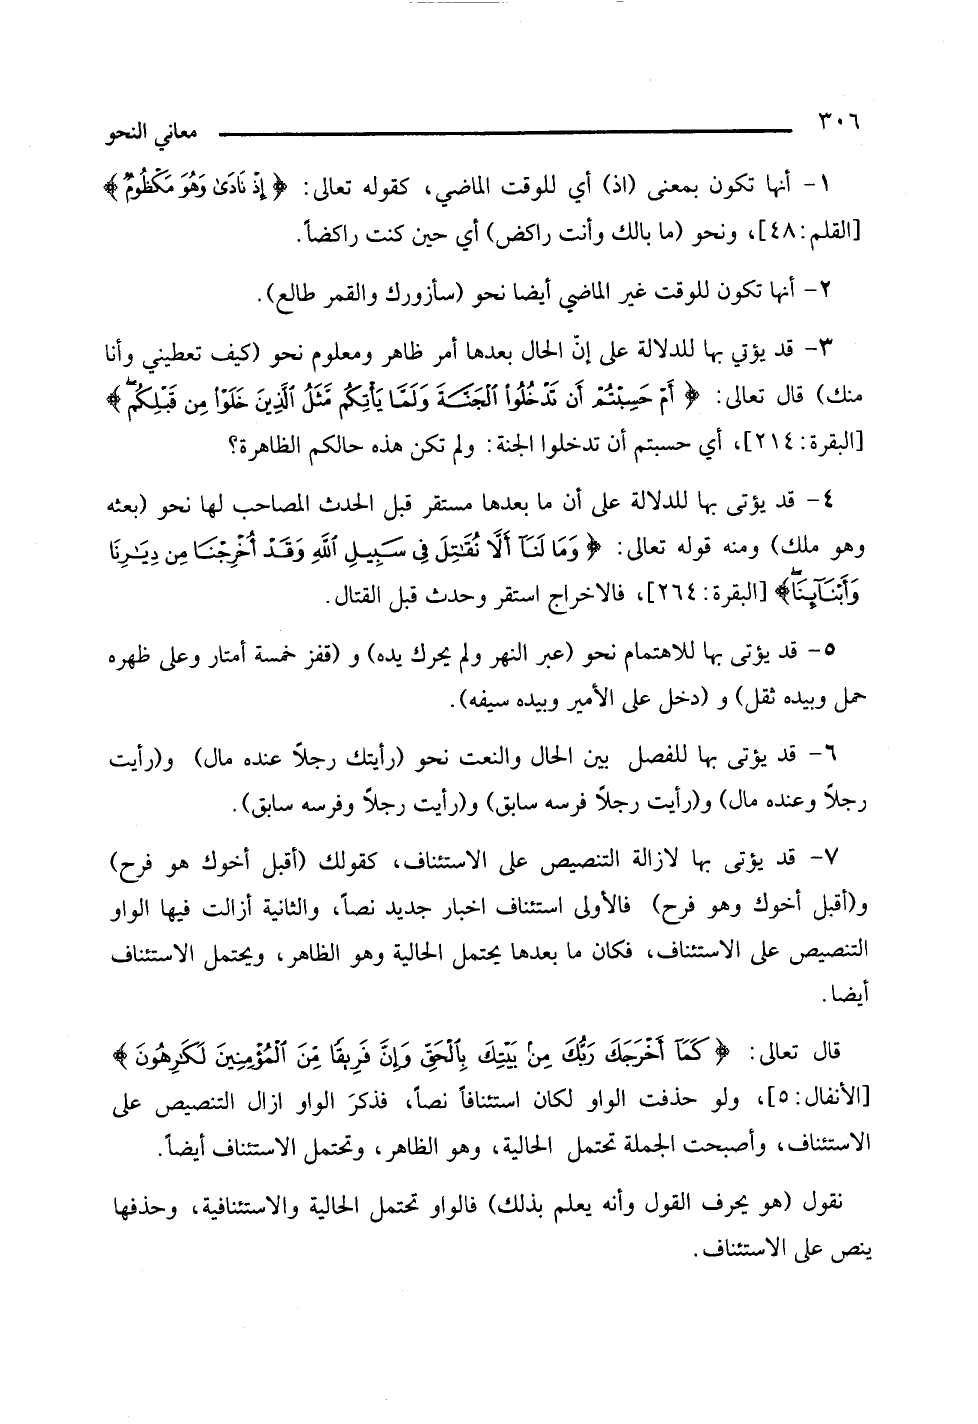 ٣٠٦ معاني النحو
١- أنها تكون بمعنى (اذ) أي للوقت الماضي، كقوله تعالى: ﴿ إِذْ نَادَىٰ وَهُوَ مَكْظُومٌ ﴾
[القلم:٤٨]، ونحو (ما بالك وأنت راكض) أي حين كنت راكضاً.
٢- أنها تكون للوقت غير الماضي أيضا نحو (سأزورك والقمر طالع).
٣- قد يؤتي بها للدلالة على إنّ الحال بعدها أمر ظاهر ومعلوم نحو (كيف تعطيني وأنا
منك) قال تعالى: ﴿ أَمْ حَسِبْتُمْ أَن تَدْخُلُوا۟ ٱلْجَنَّةَ وَلَمَّا يَأْتِكُم مَّثَلُ ٱلَّذِينَ خَلَوْا۟ مِن قَبْلِكُم ۖ ﴾
[البقرة:٢١٤]، أي حسبتم أن تدخلوا الجنة: ولم تكن هذه حالكم الظاهرة؟
٤- قد يؤتى بها للدلالة على أن ما بعدها مستقر قبل الحدث المصاحب لها نحو (بعثه
وهو ملك) ومنه قوله تعالى: ﴿ وَمَا لَنَآ أَلَّا نُقَـٰتِلَ فِى سَبِيلِ ٱللَّهِ وَقَدْ أُخْرِجْنَا مِن دِيَـٰرِنَا
وَأَبْنَآئِنَا ۖ﴾ [البقرة:٢٦٤]، فالاخراج استقر وحدث قبل القتال.
٥- قد يؤتى بها للاهتمام نحو (عبر النهر ولم يحرك يده) و (قفز خمسة أمتار وعلى ظهره
حمل وبيده ثقل) و (دخل على الأمير وبيده سيفه).
٦- قد يؤتى بها للفصل بين الحال والنعت نحو (رأيتك رجلاً عنده مال) و(رأيت
رجلاً وعنده مال) و(رأيت رجلاً فرسه سابق) و(رأيت رجلاً وفرسه سابق).
٧- قد يؤتى بها لازالة التنصيص على الاستئناف، كقولك (أقبل أخوك هو فرح)
و(أقبل أخوك وهو فرح) فالأولى استئناف اخبار جديد نصاً، والثانية أزالت فيها الواو
التنصيص على الاستئناف، فكان ما بعدها يحتمل الحالية وهو الظاهر، ويحتمل الاستئناف
أيضا.
قال تعالى: ﴿ كَمَآ أَخْرَجَكَ رَبُّكَ مِنۢ بَيْتِكَ بِٱلْحَقِّ وَإِنَّ فَرِيقًا مِّنَ ٱلْمُؤْمِنِينَ لَكَـٰرِهُونَ ﴾
[الأنفال:٥]، ولو حذفت الواو لكان استئنافاً نصاً، فذكرَ الواو ازال التنصيص على
الاستئناف، وأصبحت الجملة تحتمل الحالية، وهو الظاهر، وتحتمل الاستئناف أيضاً.
نقول (هو يحرف القول وأنه يعلم بذلك) فالواو تحتمل الحالية والاستئنافية، وحذفها
ينص على الاستئناف.